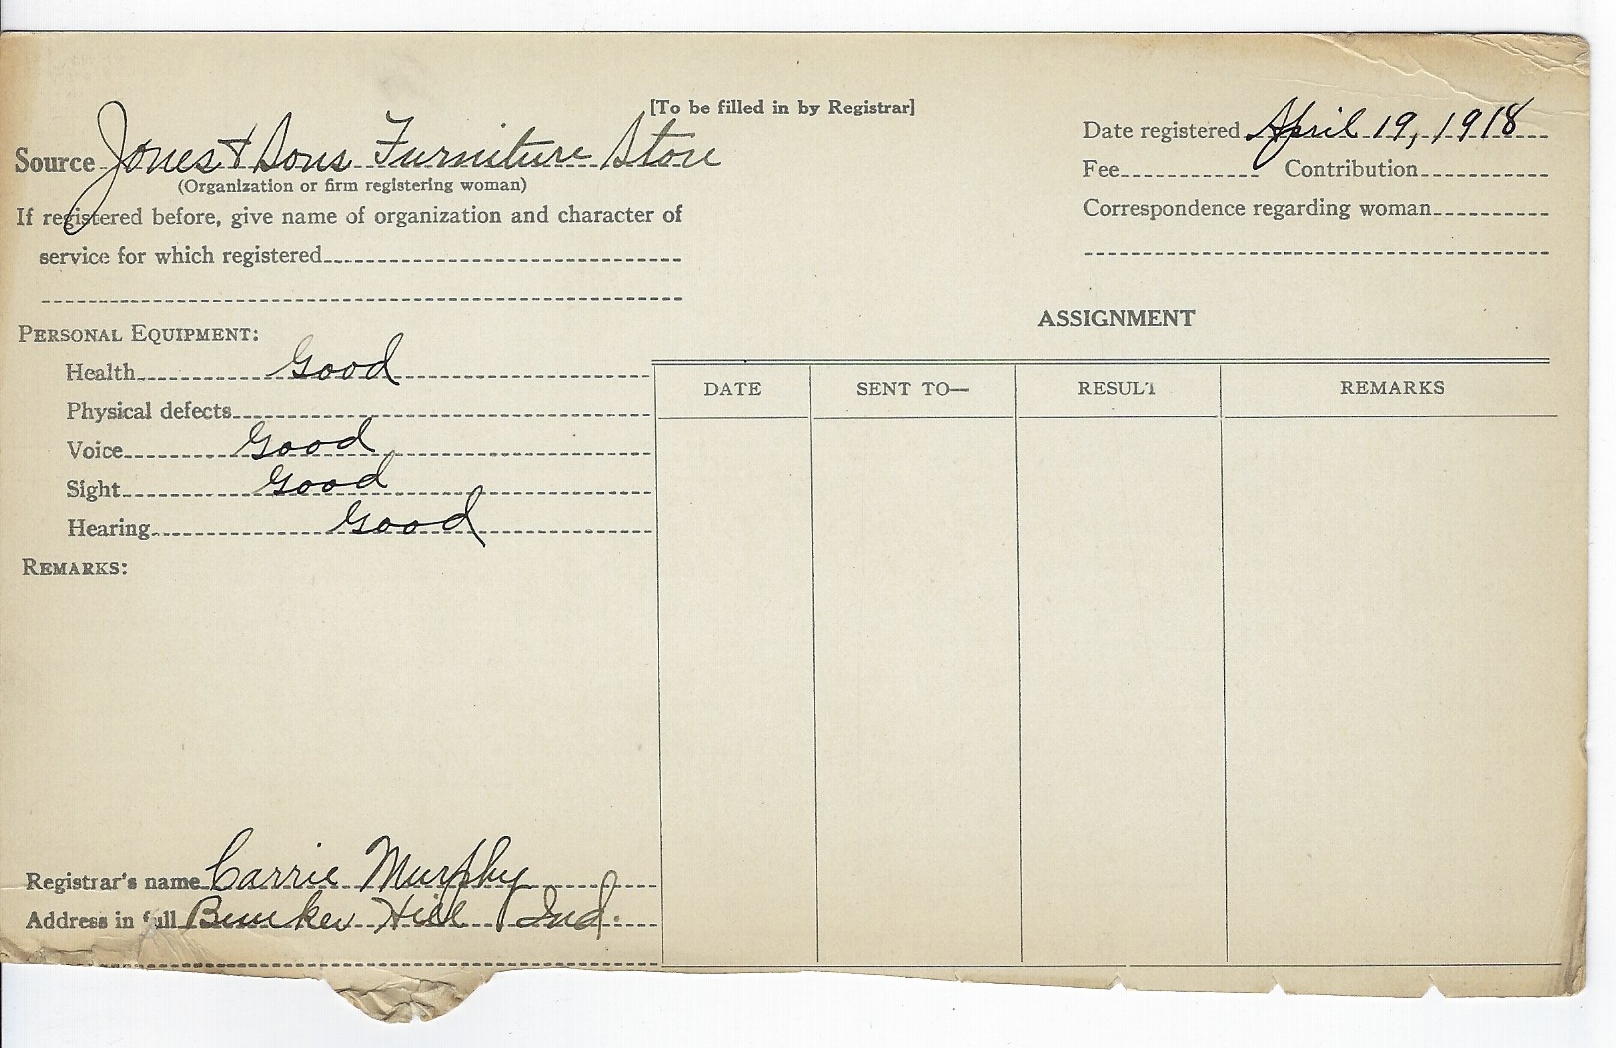 [To be filled in by Registrar]
Source Jones & Sons Furniture Store
(Organization or firm registering woman)
If registered before, give name of organization and character of
service for which registered
Date registered April 19, 1918
Fee Contribution
Correspondence regarding woman
PERSONAL EQUIPMENT:
Health Good
Physical defects
Voice Good
Sight Good
Hearing Good
REMARKS:
ASSIGNMENT
DATE SENT TO— RESULT REMARKS
Registrar's name Carrie Murphy
Address in full Bunker Hill Ind.